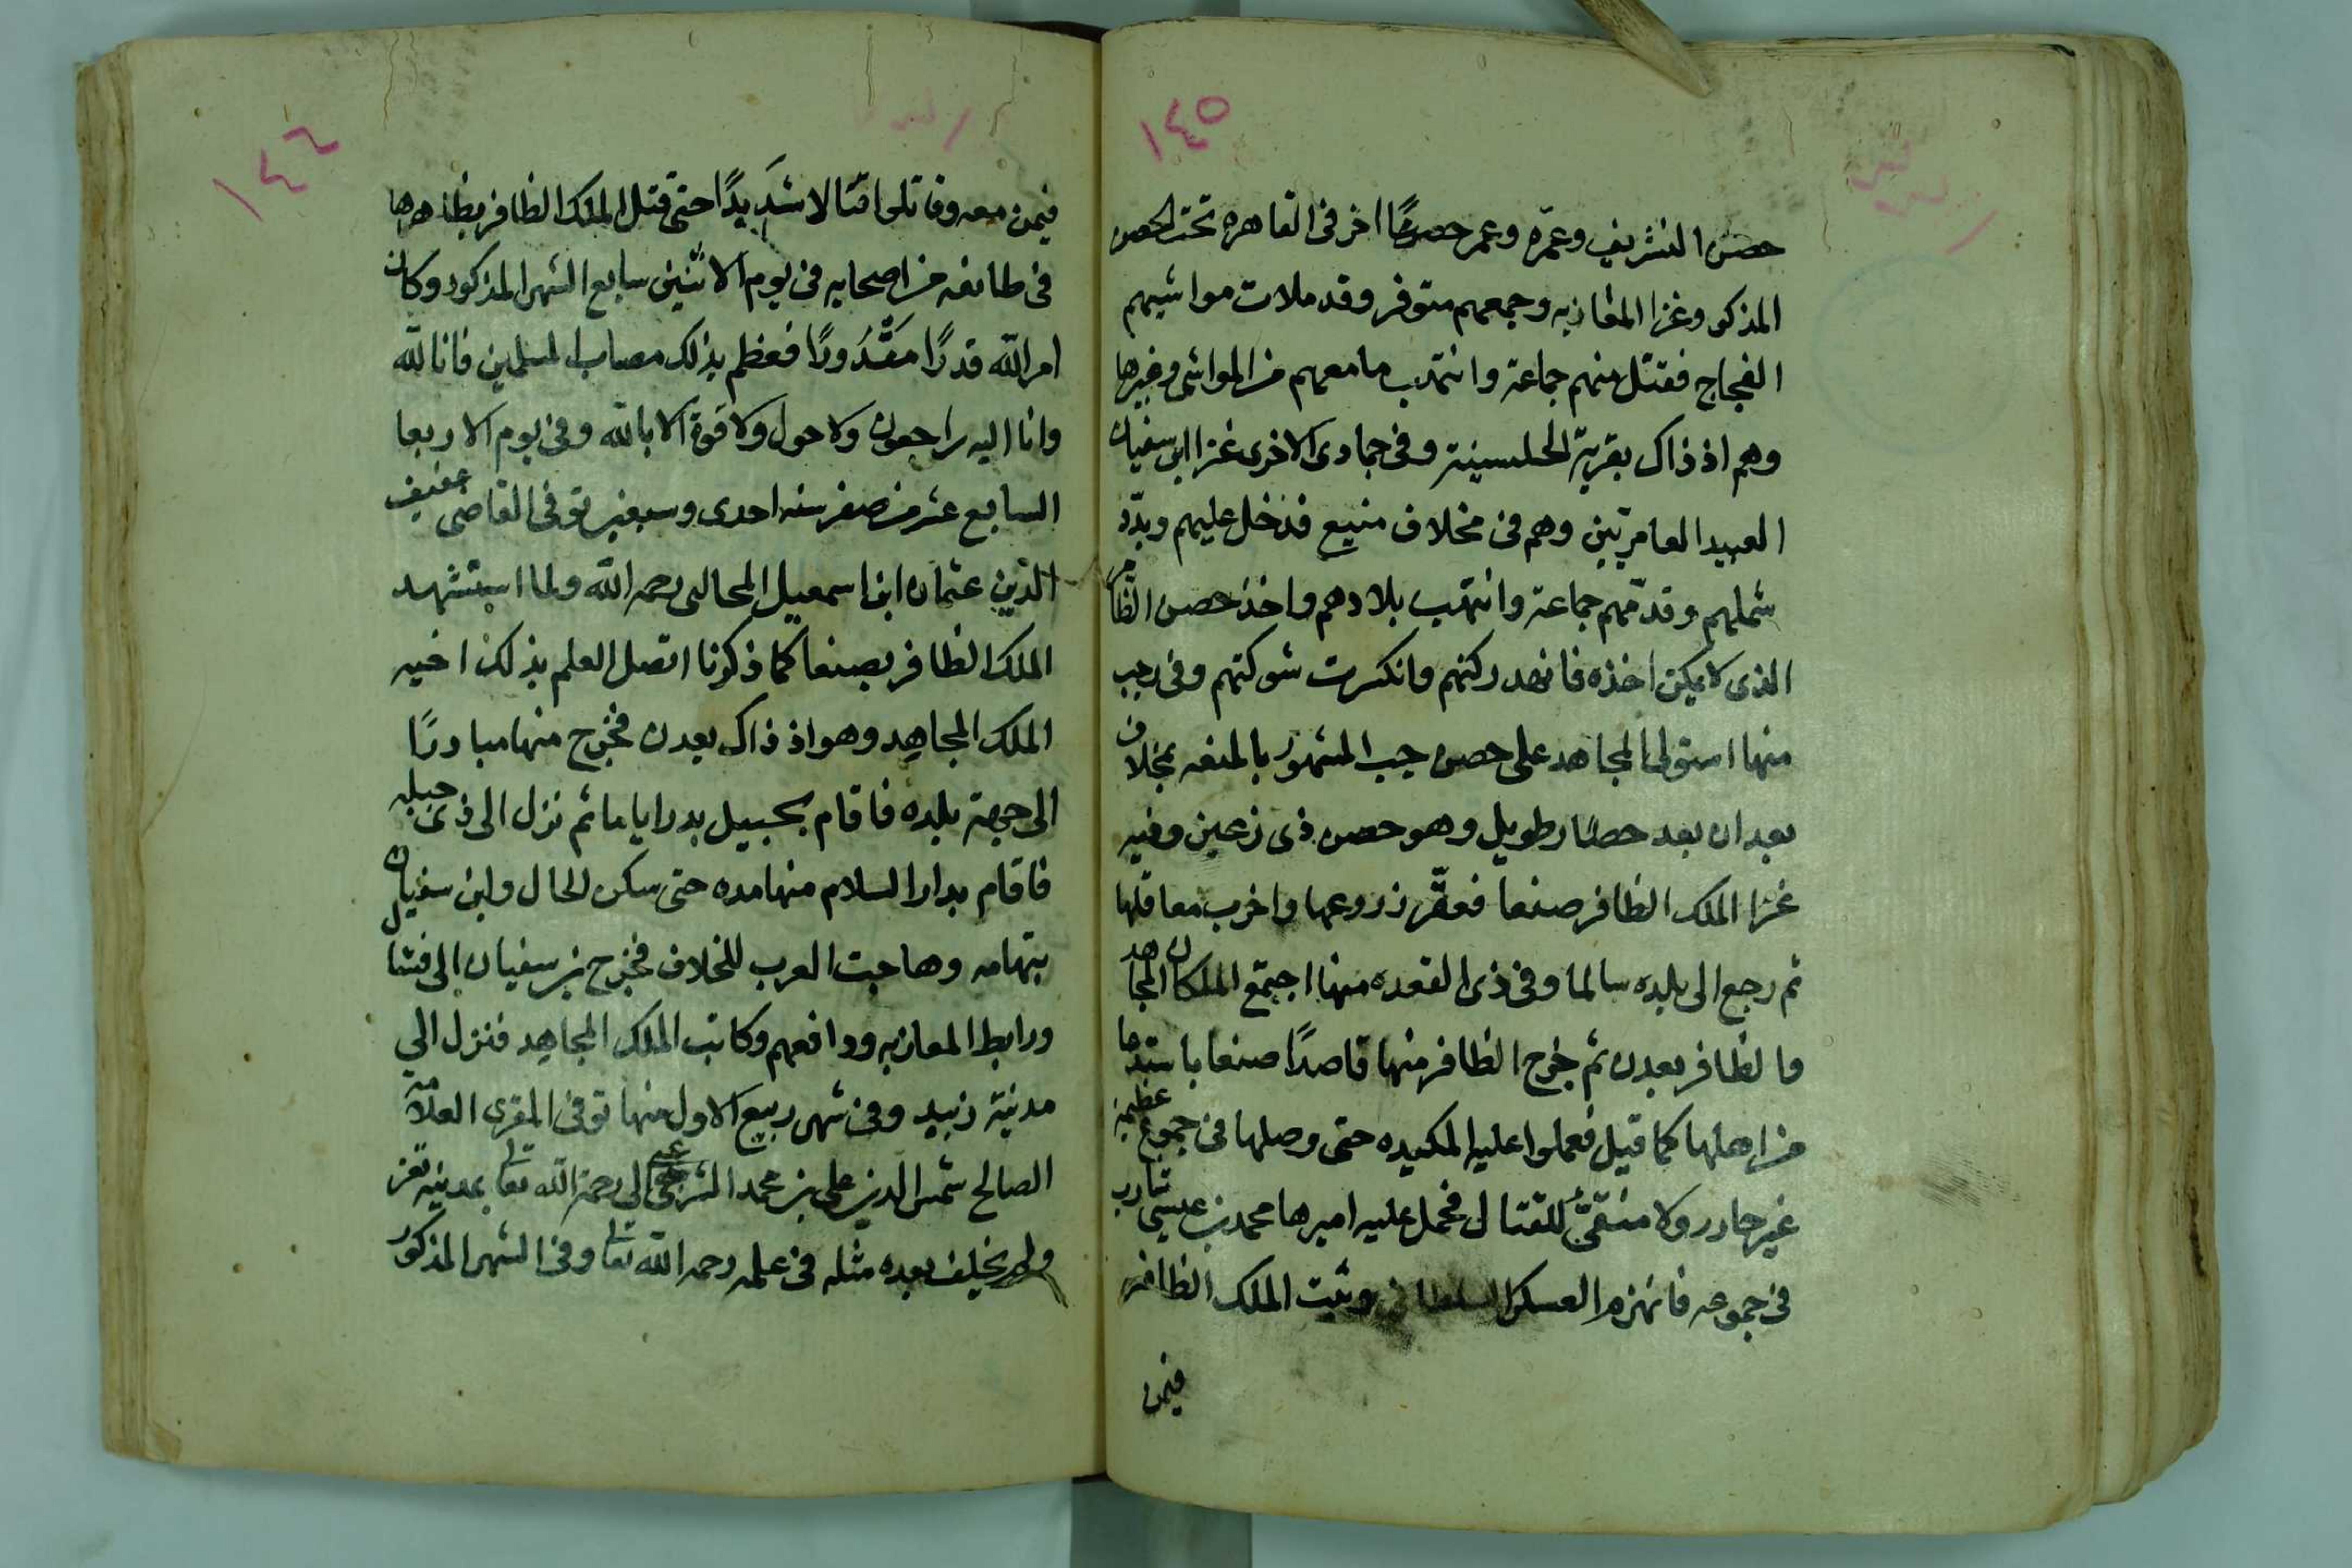 ١٤٥
حصن الشريف وعمّره وعمر حصنًا اخر فى القاهره تحت الحصن
المذكور وغزا المغازبه وجمعهم متوفر وقد ملات مواشيهم
الفجاج فقتل منهم جماعة وانتهب ما معهم من المواشى وغيرها
وهم اذ ذاك بقرية الحلسينية وفى جمادى الاخرى غزا ابن سفيان
العبيد العامريّين وهم فى مخلاف منيع فدخل عليهم وبدّد
شملهم وقد منهم جماعة وانتهب بلادهم واخذ حصن الظاهر
الذى لا يمكن اخذه فانهد ركنهم وانكسرت شوكتهم وفى رجب
منها استولى المجاهد على حصن حب المشهور بالمنعه بمخلاف
بعدان بعد حصار طويل وهو حصن ذى رعين وفيه
غزا الملك الظافر صنعا فعقّر زروعها واخرب معاقلها
ثم رجع الى بلده سالما وفى ذى القعده منها اجتمع الملكان المجاهد
والظافر بعدن ثم خرج الظافر منها قاصدًا صنعا باستدعا
من اهلها كما قيل فعملوا عليه المكيده حتى وصلها فى جموع عظيمة
غير حاذر ولا متقىّ للقتال فحمل عليه اميرها محمد بن عيسى شارب
فى جموعه فانهزم العسكر السلطانى وثبت الملك الظافر
فيمن
١٤٦
فيمن معه وقاتلوا قتالا شَديدًا حتى قتل الملك الظافر بظاهرها
فى طائفه من اصحابه فى يوم الاثنين سابع الشهر المذكور وكان
امر الله قدرًا مَقْدُورًا فعظم بذلك مصاب المسلمين فانا لله
وانا اليه راجعون ولا حول ولا قوة الا بالله وفى يوم الاربعا
السابع عشر من صفر سنه احدى وسبعين توفى القاضى عفيف
الدين عثمان ابن اسمعيل المحالبى رحمه الله ولما استشهد
الملك الظافر بصنعا كما ذكرنا اتصل العلم بذلك اخيه
الملك المجاهد وهو اذ ذاك بعدن فخرج منها مبادرًا
الى جهة بلده فاقام بحبيل بدر اياما ثم نزل الى ذى جبله
فاقام بدار السلام منها مده حتى سكن الحال وابن سفيان
بتهامه وهاجت العرب للخلاف فخرج بن سفيان الى فشال
ورابط المعازبه ودافعهم وكاتب الملك المجاهد فنزل الى
مدينة زبيد وفى شهر ربيع الاول منها توفى المقرى العلامة
الصالح شمس الدين على بن محمد الشرعبى الى رحمة الله تعالى بمدينه تعز
ولم يخلف بعده مثله فى علمه رحمه الله تعالى وفى الشهر المذكور